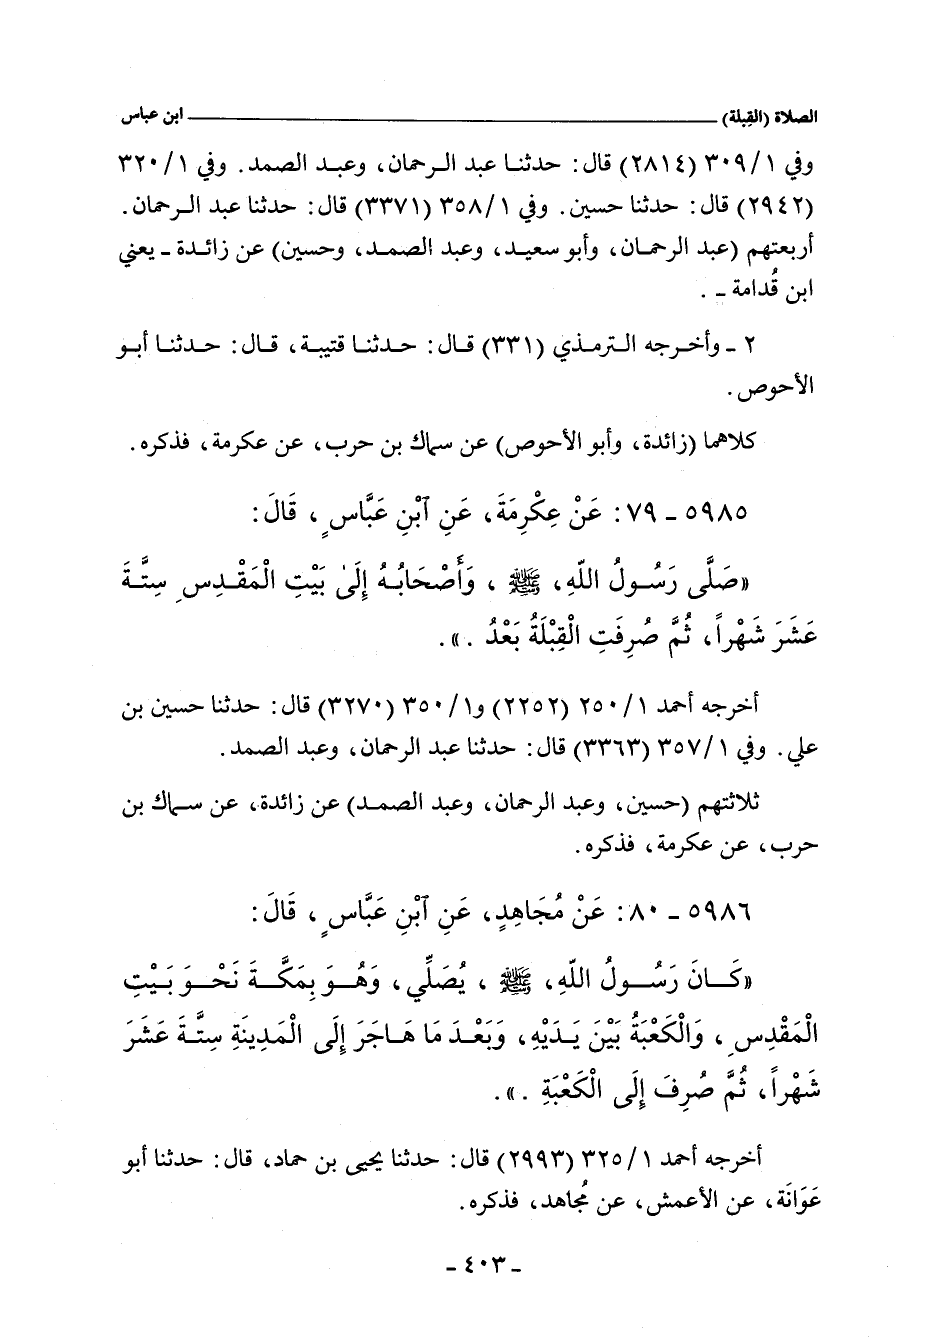 الصلاة (القِبلة) ـــــــــــــــــــــــــــــــــــــــــــــــــ ابن عباس
وفي ١/ ٣٠٩ (٢٨١٤) قال: حدثنا عبد الرحمان، وعبد الصمد. وفي ١/ ٣٢٠
(٢٩٤٢) قال: حدثنا حسين. وفي ١/ ٣٥٨ (٣٣٧١) قال: حدثنا عبد الرحمان.
أربعتهم (عبد الرحمان، وأبو سعيد، وعبد الصمد، وحسين) عن زائدة ـ يعني
ابن قُدامة ـ .
٢ ـ وأخرجه الترمذي (٣٣١) قال: حدثنا قتيبة، قال: حدثنا أبو
الأحوص.
كلاهما (زائدة، وأبو الأحوص) عن سماك بن حرب، عن عكرمة، فذكره.
٥٩٨٥ ـ ٧٩: عَنْ عِكْرِمَةَ، عَنِ ٱبْنِ عَبَّاسٍ، قَالَ:
«صَلَّى رَسُولُ اللّهِ، ﷺ ، وَأَصْحَابُهُ إِلَىٰ بَيْتِ الْمَقْدِسِ سِتَّةَ
عَشَرَ شَهْراً، ثُمَّ صُرِفَتِ الْقِبْلَةُ بَعْدُ .».
أخرجه أحمد ١/ ٢٥٠ (٢٢٥٢) و١/ ٣٥٠ (٣٢٧٠) قال: حدثنا حسين بن
علي. وفي ١/ ٣٥٧ (٣٣٦٣) قال: حدثنا عبد الرحمان، وعبد الصمد.
ثلاثتهم (حسين، وعبد الرحمان، وعبد الصمد) عن زائدة، عن سماك بن
حرب، عن عكرمة، فذكره.
٥٩٨٦ ـ ٨٠: عَنْ مُجَاهِدٍ، عَنِ ٱبْنِ عَبَّاسٍ، قَالَ:
«كَانَ رَسُولُ اللّهِ، ﷺ ، يُصَلِّي، وَهُوَ بِمَكَّةَ نَحْوَ بَيْتِ
الْمَقْدِسِ، وَالْكَعْبَةُ بَيْنَ يَدَيْهِ، وَبَعْدَ مَا هَاجَرَ إِلَى الْمَدِينَةِ سِتَّةَ عَشَرَ
شَهْراً، ثُمَّ صُرِفَ إِلَى الْكَعْبَةِ .».
أخرجه أحمد ١/ ٣٢٥ (٢٩٩٣) قال: حدثنا يحيى بن حماد، قال: حدثنا أبو
عَوَانَة، عن الأعمش، عن مُجاهد، فذكره.
ـ ٤٠٣ ـ